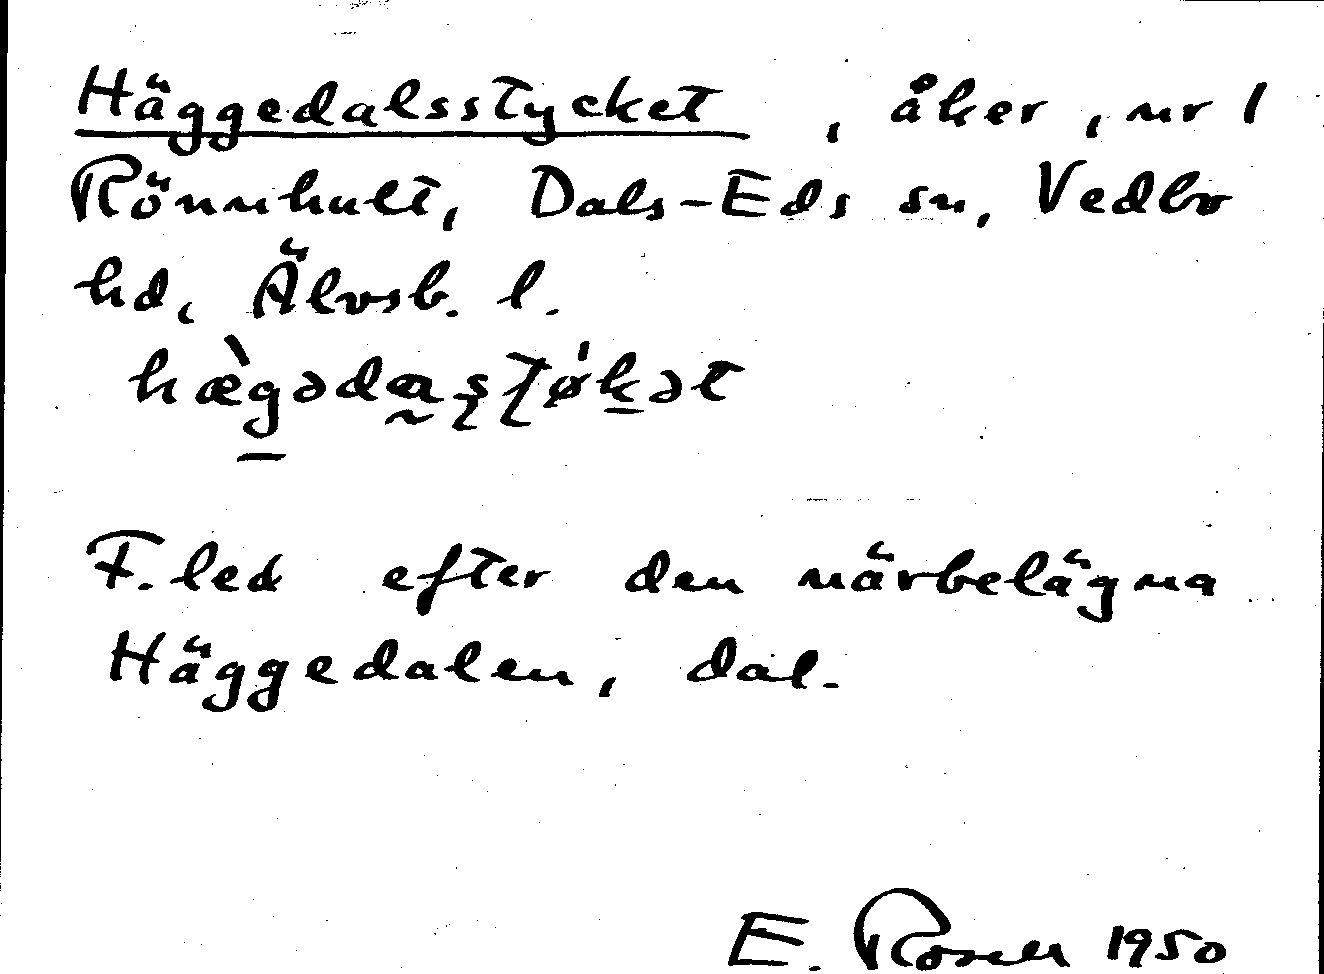 Häggedalsstycket, åker, nr 1
Rönnhult, Dals-Eds sn, Vedbo
hd, Älvsb. l.
hæ̀g̱əda̰ʂʈø̍ḵət
F. led efter den närbelägna
Häggedalen, dal.
E. Rosell 1950